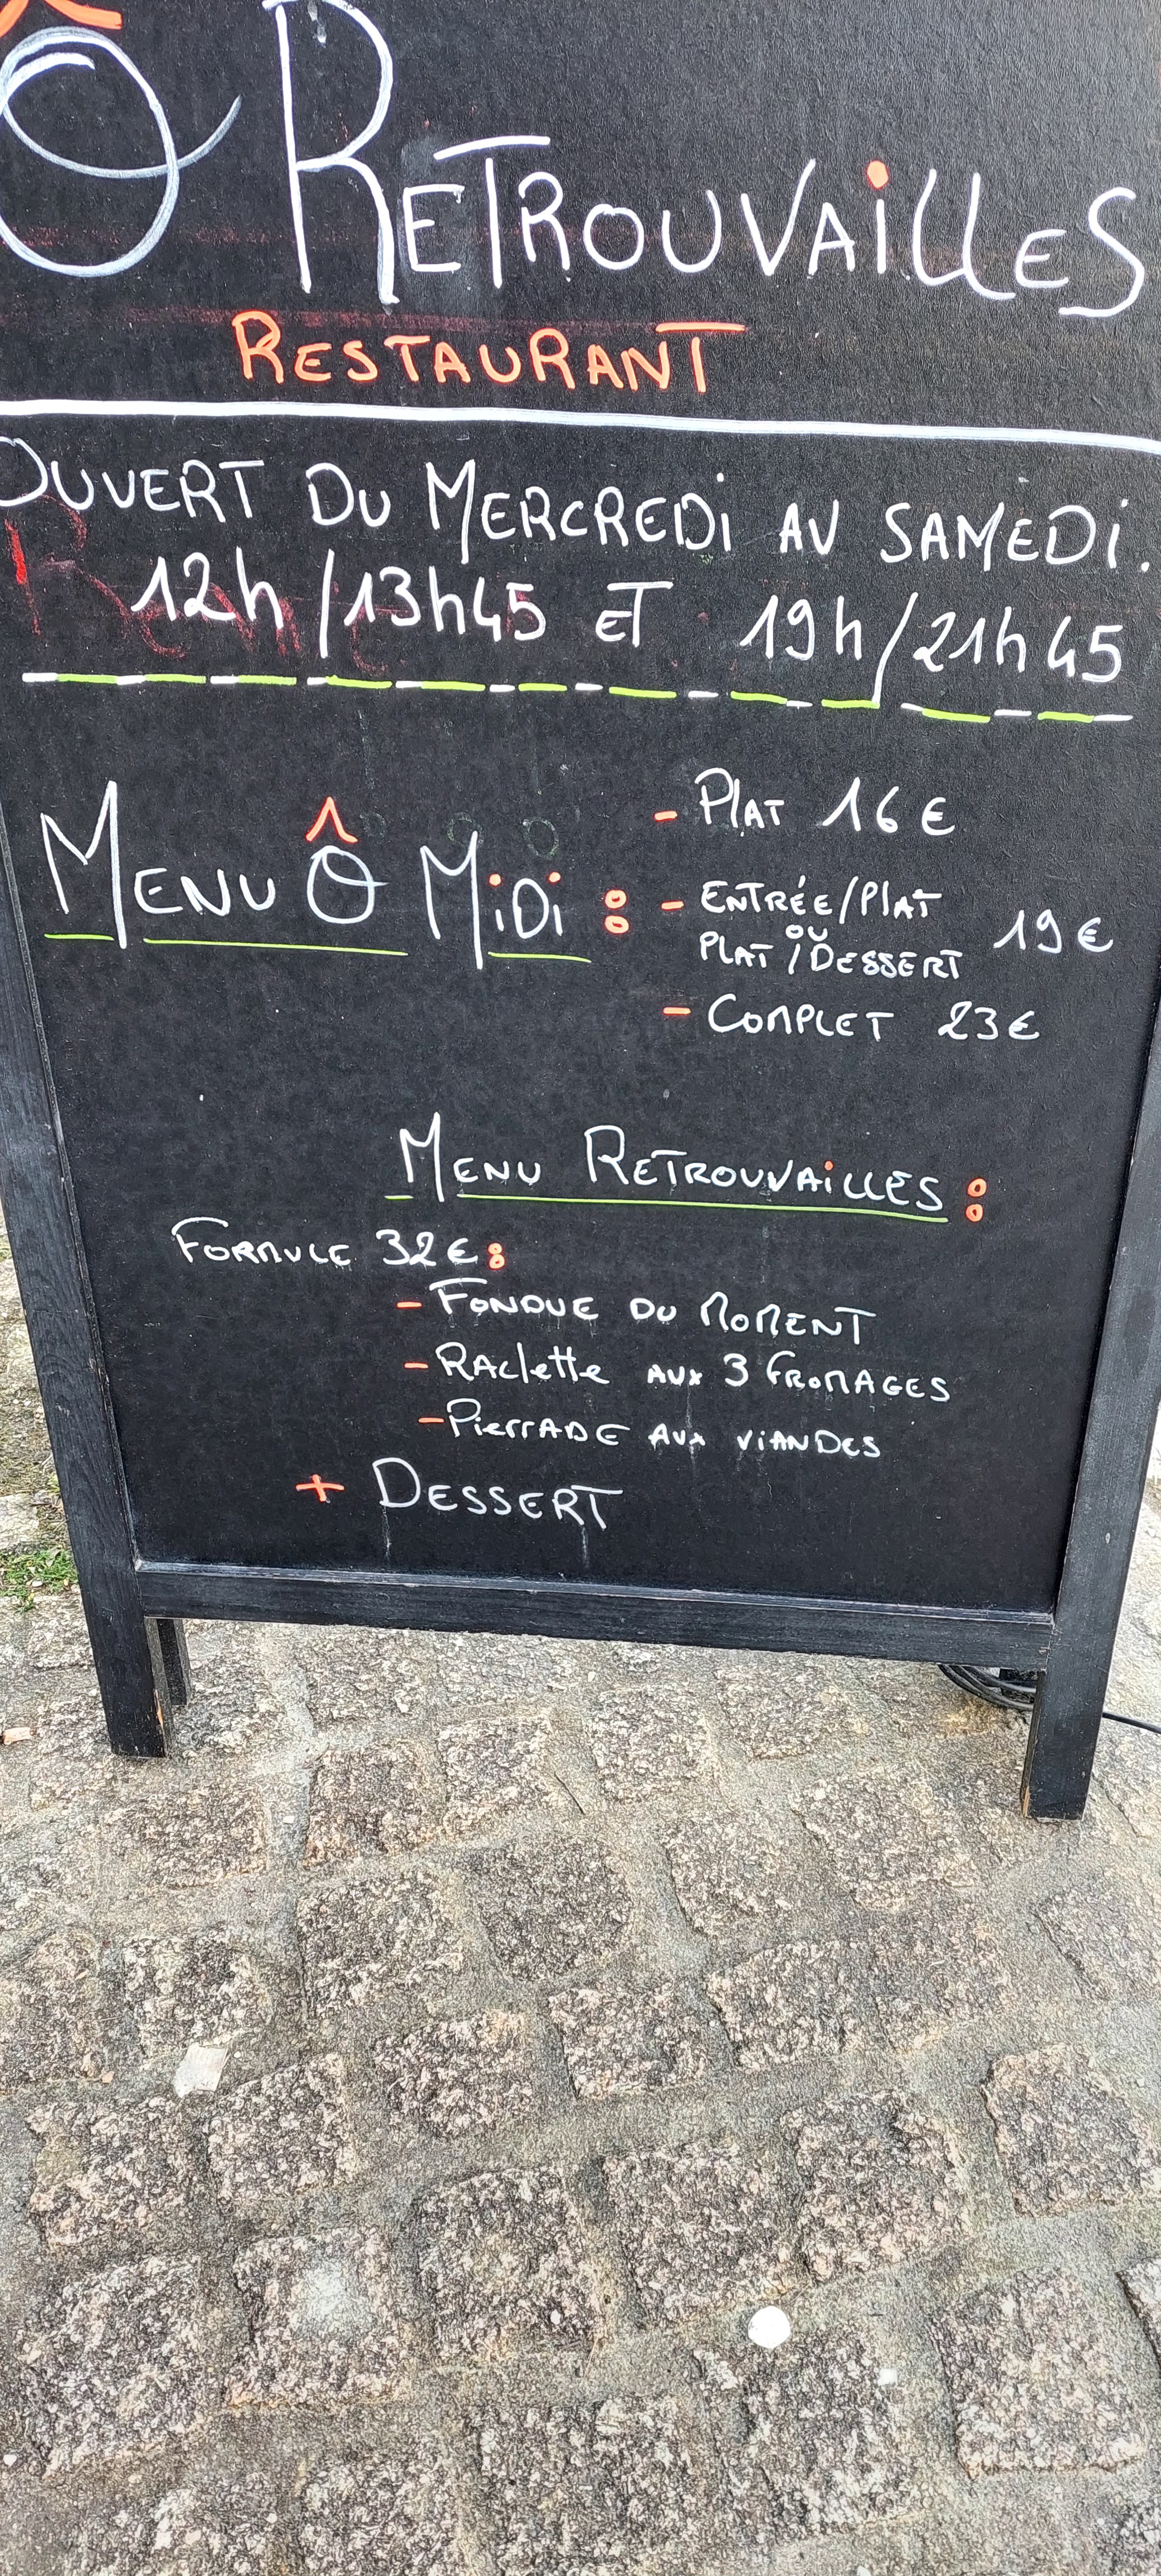 Ô RETROUVAiLLES
RESTAURANT
OUVERT DU MERCREDi AU SAMEDi.
12h/13h45 ET 19h/21h45
MENU Ô MiDi :
- PLAT 16€
- ENTRÉE/PLAT
OU
PLAT/DESSERT 19€
- COMPLET 23€
MENU RETROUVAiLLES :
FORMULE 32€ :
- FONDUE DU MOMENT
- RAClette AUX 3 FROMAGES
- PierrADE AUX ViANDES
+ DESSERT